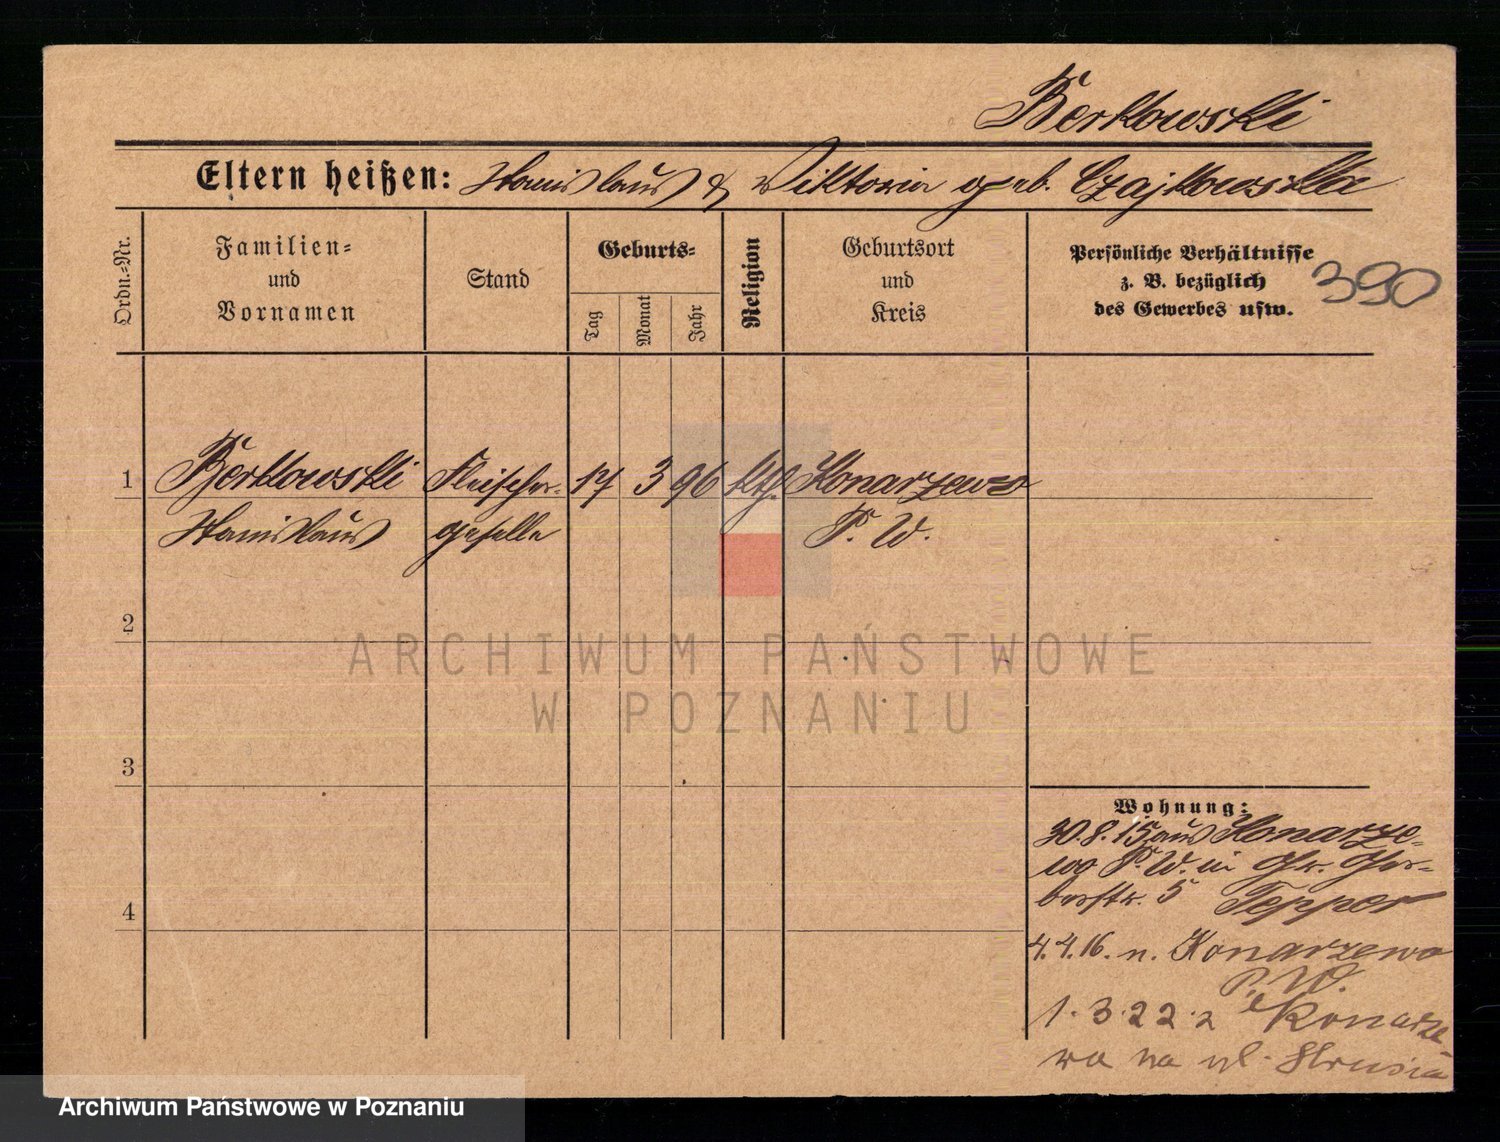 Berkowski
Eltern heißen: Stanislaus & Viktoria geb. Czajkowska
Ordn.-Nr.
Familien-
und
Vornamen
Stand
Geburts-
Tag
Monat
Jahr
Religion
Geburtsort
und
Kreis
Persönliche Verhältnisse
z. B. bezüglich
des Gewerbes usw.
390
1
Berkowski
Stanislaus
Fleischer-
geselle
17
3
96
kth.
Konarzewo
P. W.
2
3
4
Wohnung:
30.8.15 aus Konarze-
wo P. W. in Gr. Ger-
berstr. 5 Tepper
4.4.16. n. Konarzewo
P. W.
1.3.22. z Konarze-
wa na ul.
ARCHIWUM PAŃSTWOWE
W POZNANIU
Archiwum Państwowe w Poznaniu